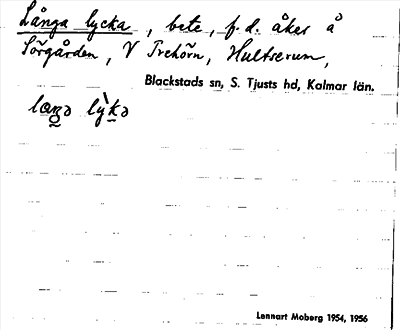 Långa lycka, bete, f.d. åker å
Sörgården, V Trehörn, Hultserum,
Blackstads sn, S. Tjusts hd, Kalmar län.
Lennart Moberg 1954, 1956